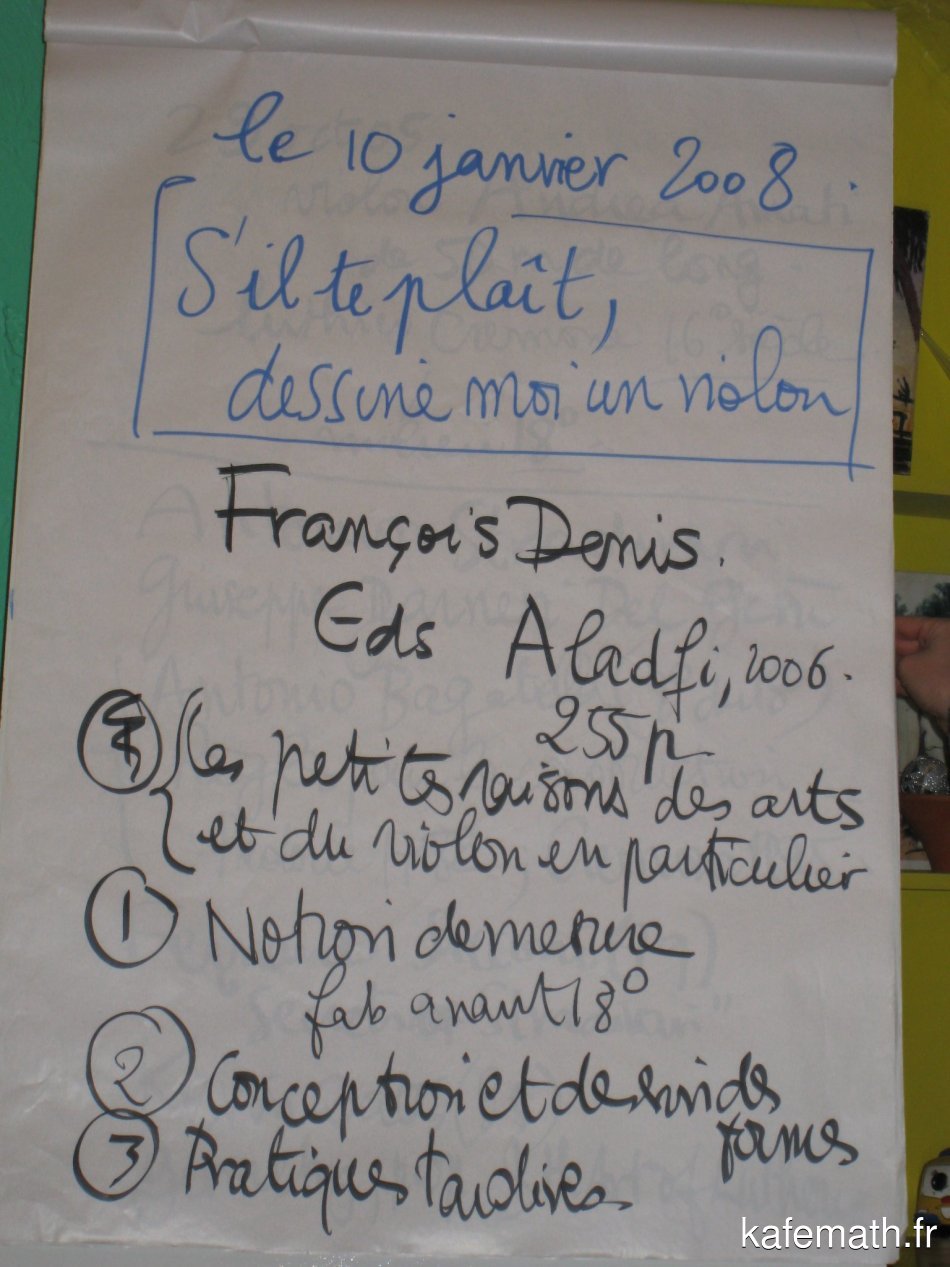 le 10 janvier 2008.
S'il te plaît,
dessine moi un violon
François Denis.
Eds Aladfi, 2006.
255 p
4 Les petites raisons des arts
et du violon en particulier
1 Notion de mesure
fab avant 18°
2 Conception et dessin des
formes
3 Pratiques tardives
kafemath.fr